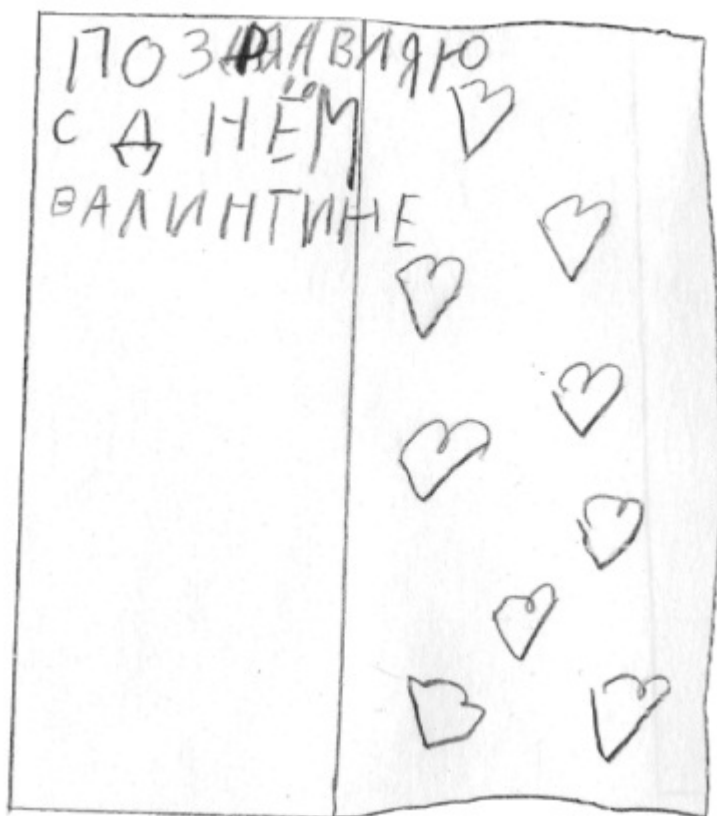 ПОЗДРАВИЯЮ
С ДНЁМ
ВАЛИНТИНЕ